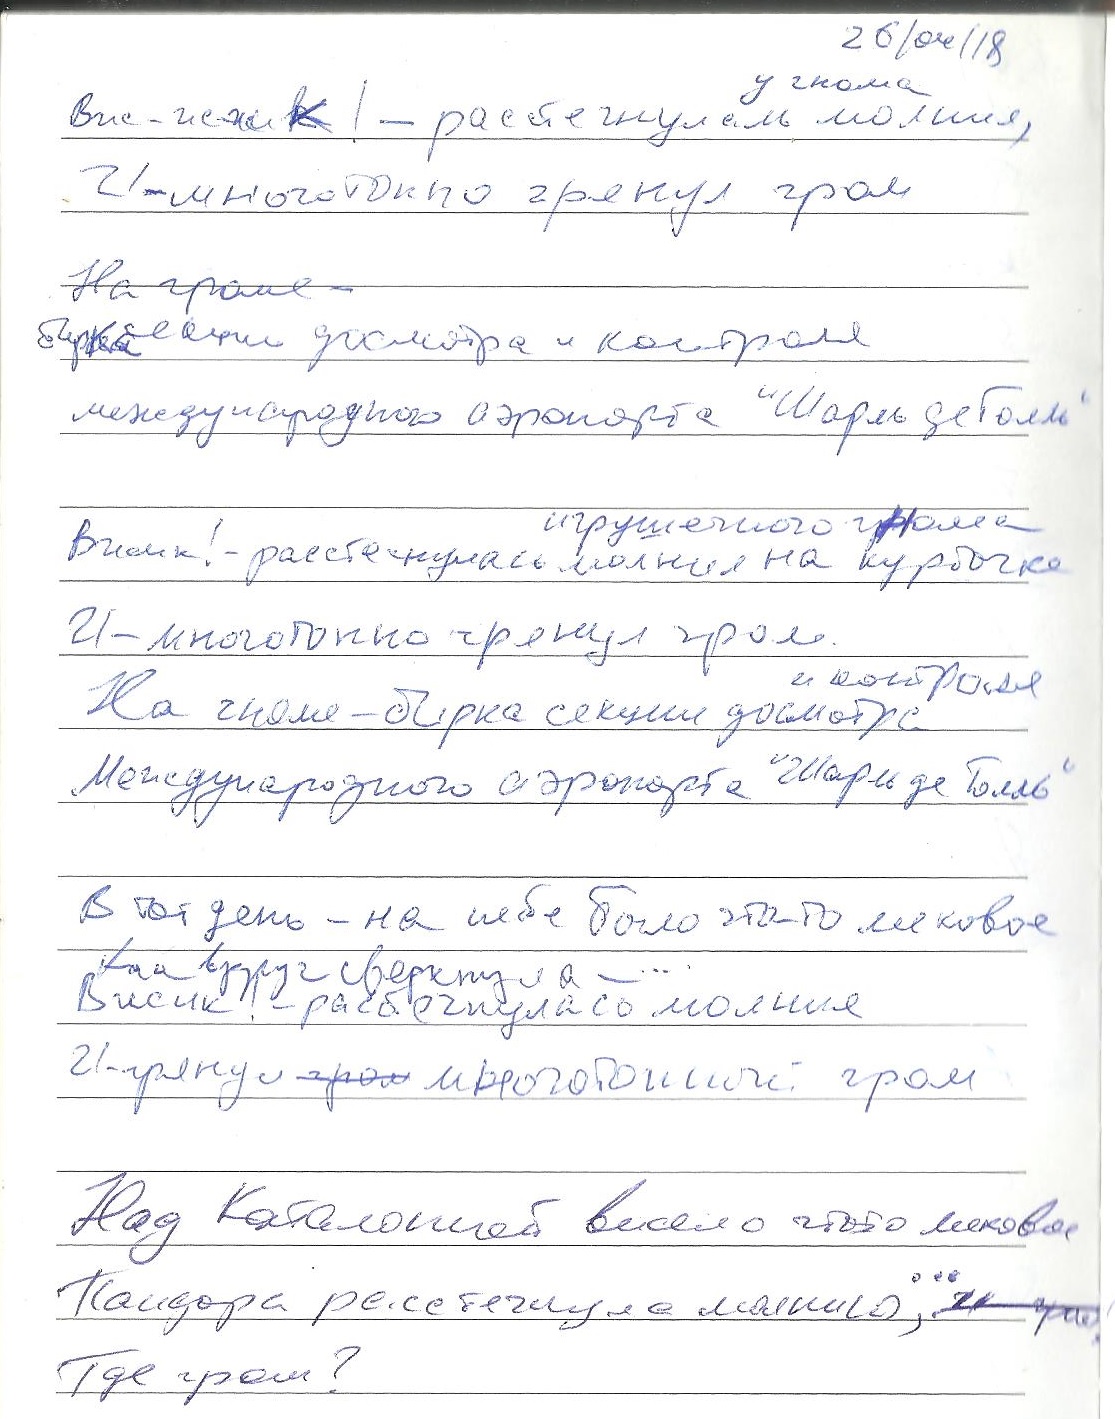 26/04/18
у гнома
! – расстегнулась молния,
И – многотонно грянул гром
На громе –
бирка секции досмотра и контроля
международного аэропорта "Шарль де Голль"
игрушечного гнома
Вжик! – расстегнулась молния на курточке
И – многотонно грянул гром.
и контроля
На гноме – бирка секции досмотра
Международного аэропорта "Шарль де Голль"
В тот день – на небе было что-то меховое
Как вдруг сверкнула – ...
Вжик! – расстегнулась молния
И – грянул гром многотонный гром
Над Каталонией висело что-то меховое
Пандора расстегнула молнию, ...
Где гром?